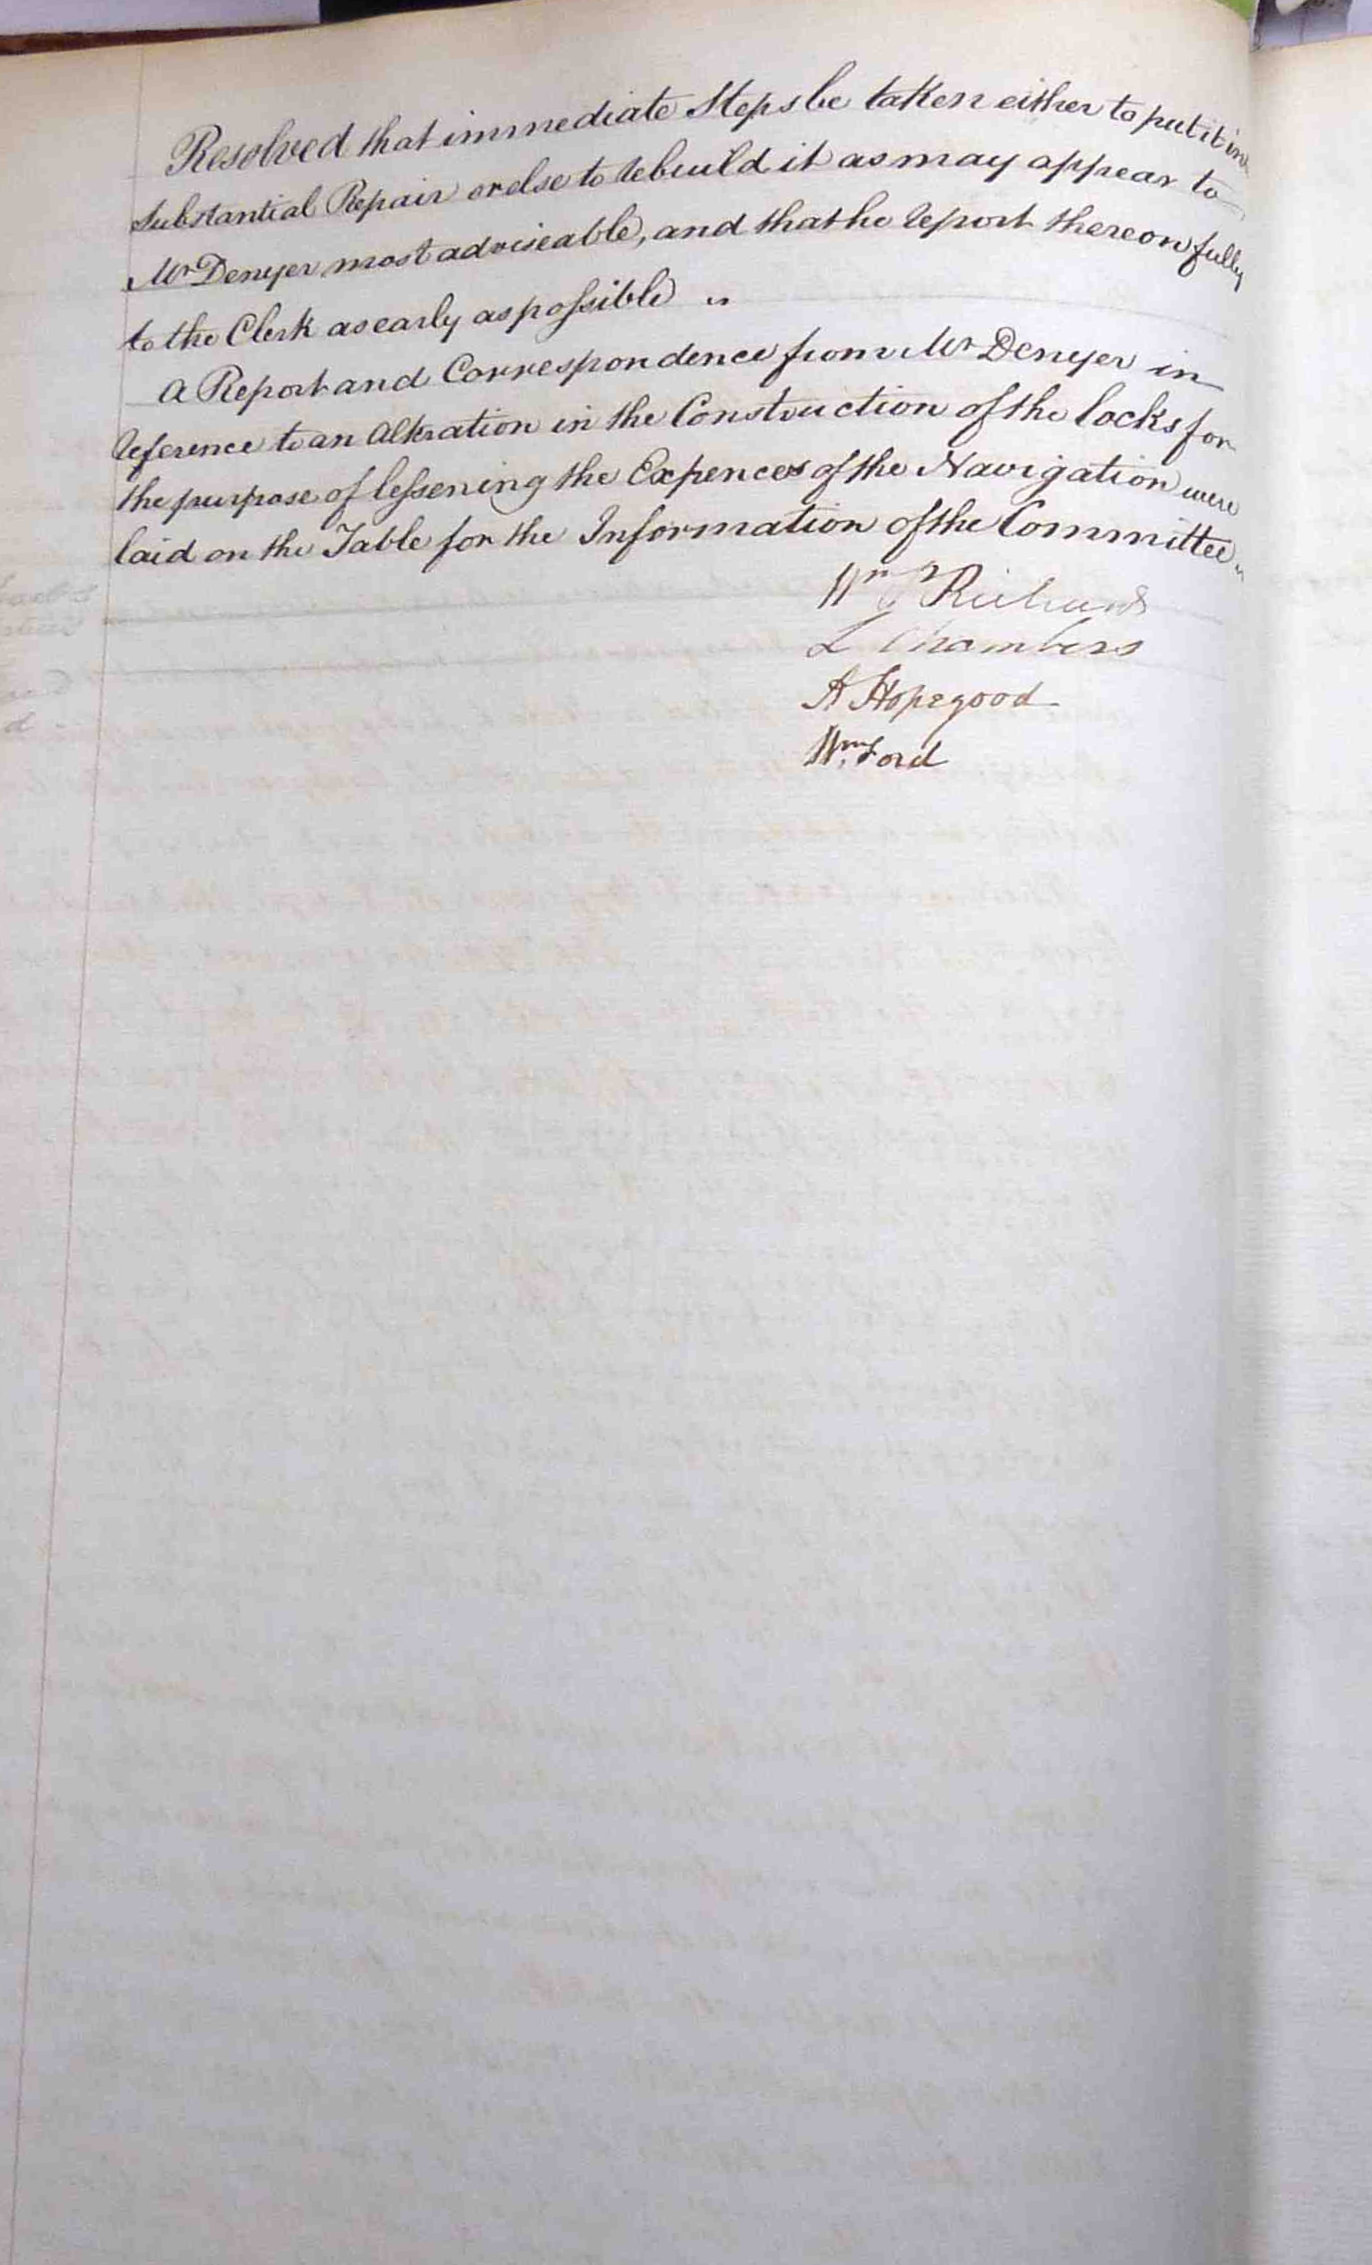 Resolved that immediate Steps be taken either to put it in
Substantial Repair or else to rebuild it as may appear to
Mr Denyer most adviseable, and that he report thereon fully
to the Clerk as early as possible "
A Report and Correspondence from Mr Denyer in
reference to an Alteration in the Construction of the locks for
the purpose of lessening the Expences of the Navigation were
laid on the Table for the Information of the Committee "
Wm Richards
L Chambers
A Hopegood
Wm Ford